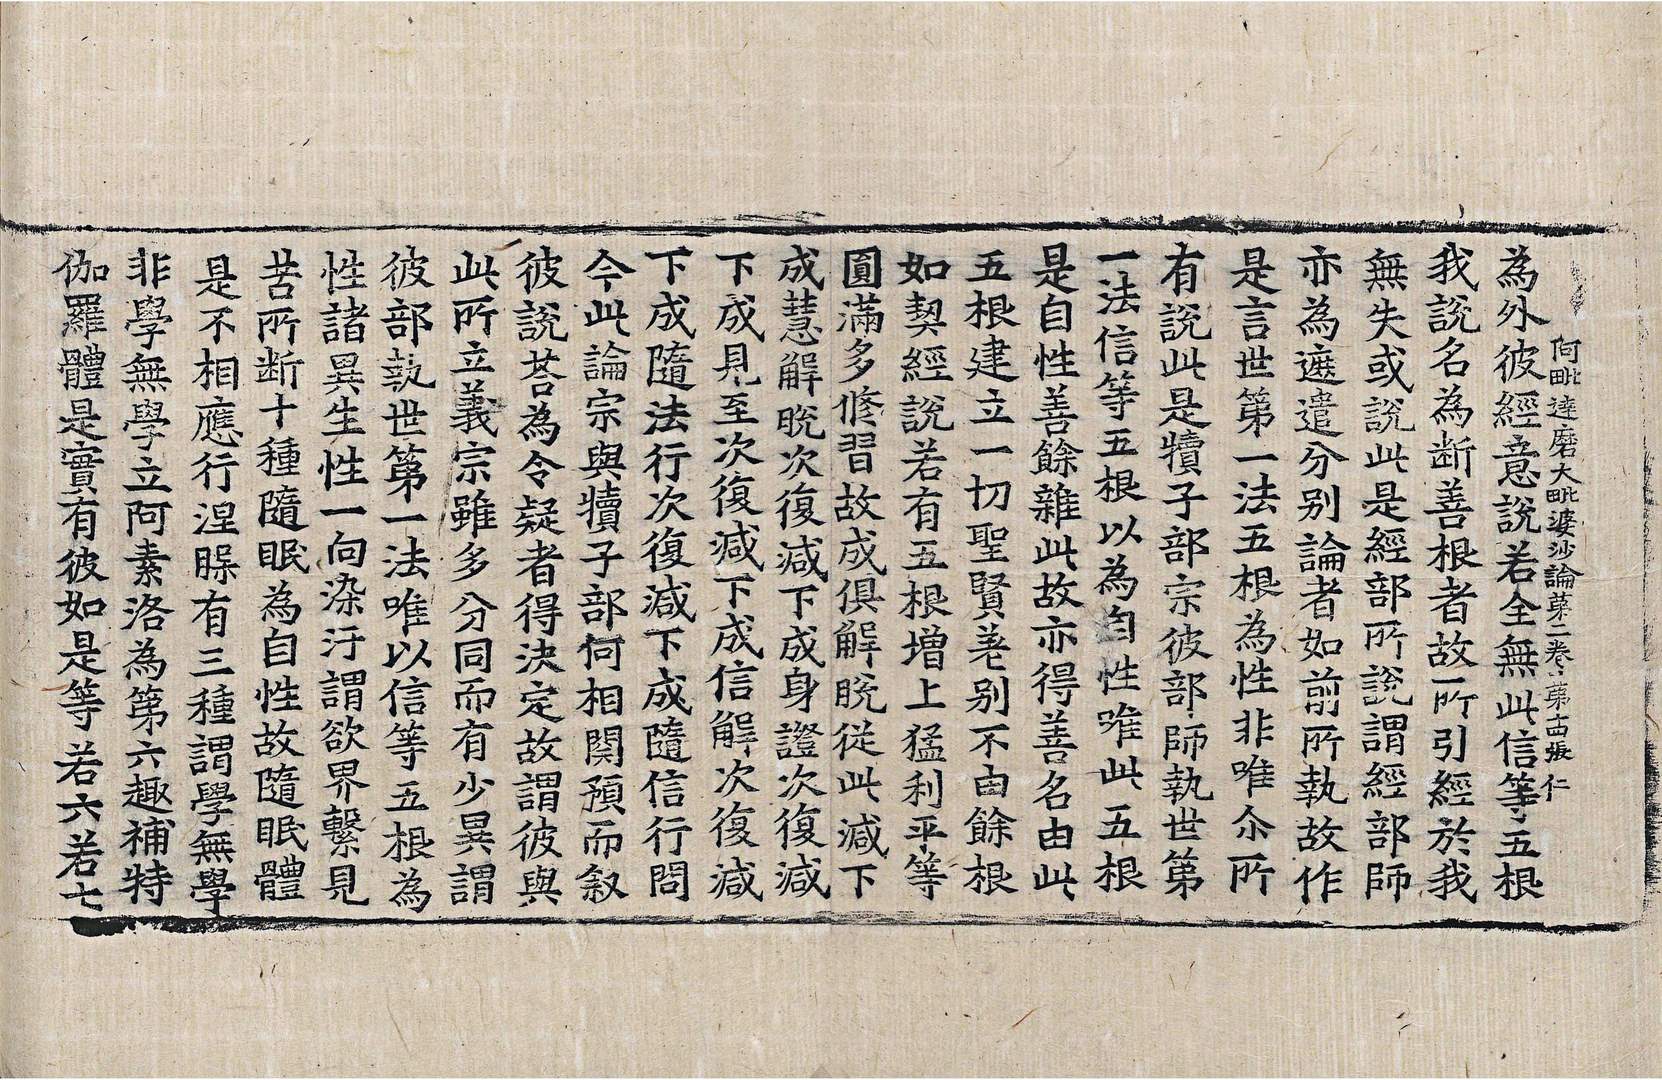 阿毗達磨大毗婆沙論第二卷 第十四張 仁
為外彼經意說若全無此信等五根
我說名為断善根者故所引經於我
無失或說此是經部所說謂經部師
亦為遮遣分别論者如前所執故作
是言世第一法五根為性非唯尒所
有說此是犢子部宗彼部師執世第
一法信等五根以為自性唯此五根
是自性善餘雜此故亦得善名由此
五根建立一切聖賢差别不由餘根
如契經說若有五根增上猛利平等
圓滿多修習故成俱解脫從此減下
成慧解脫次復減下成身證次復減
下成見至次復減下成信解次復減
下成隨法行次復減下成隨信行問
今此論宗與犢子部何相関預而叙
彼說荅為令疑者得決定故謂彼與
此所立義宗雖多分同而有少異謂
彼部執世第一法唯以信等五根為
性諸異生性一向染汙謂欲界繫見
苦所断十種隨眠為自性故隨眠體
是不相應行涅槃有三種謂學無學
非學無學立阿素洛為第六趣補特
伽羅體是實有彼如是等若六若七